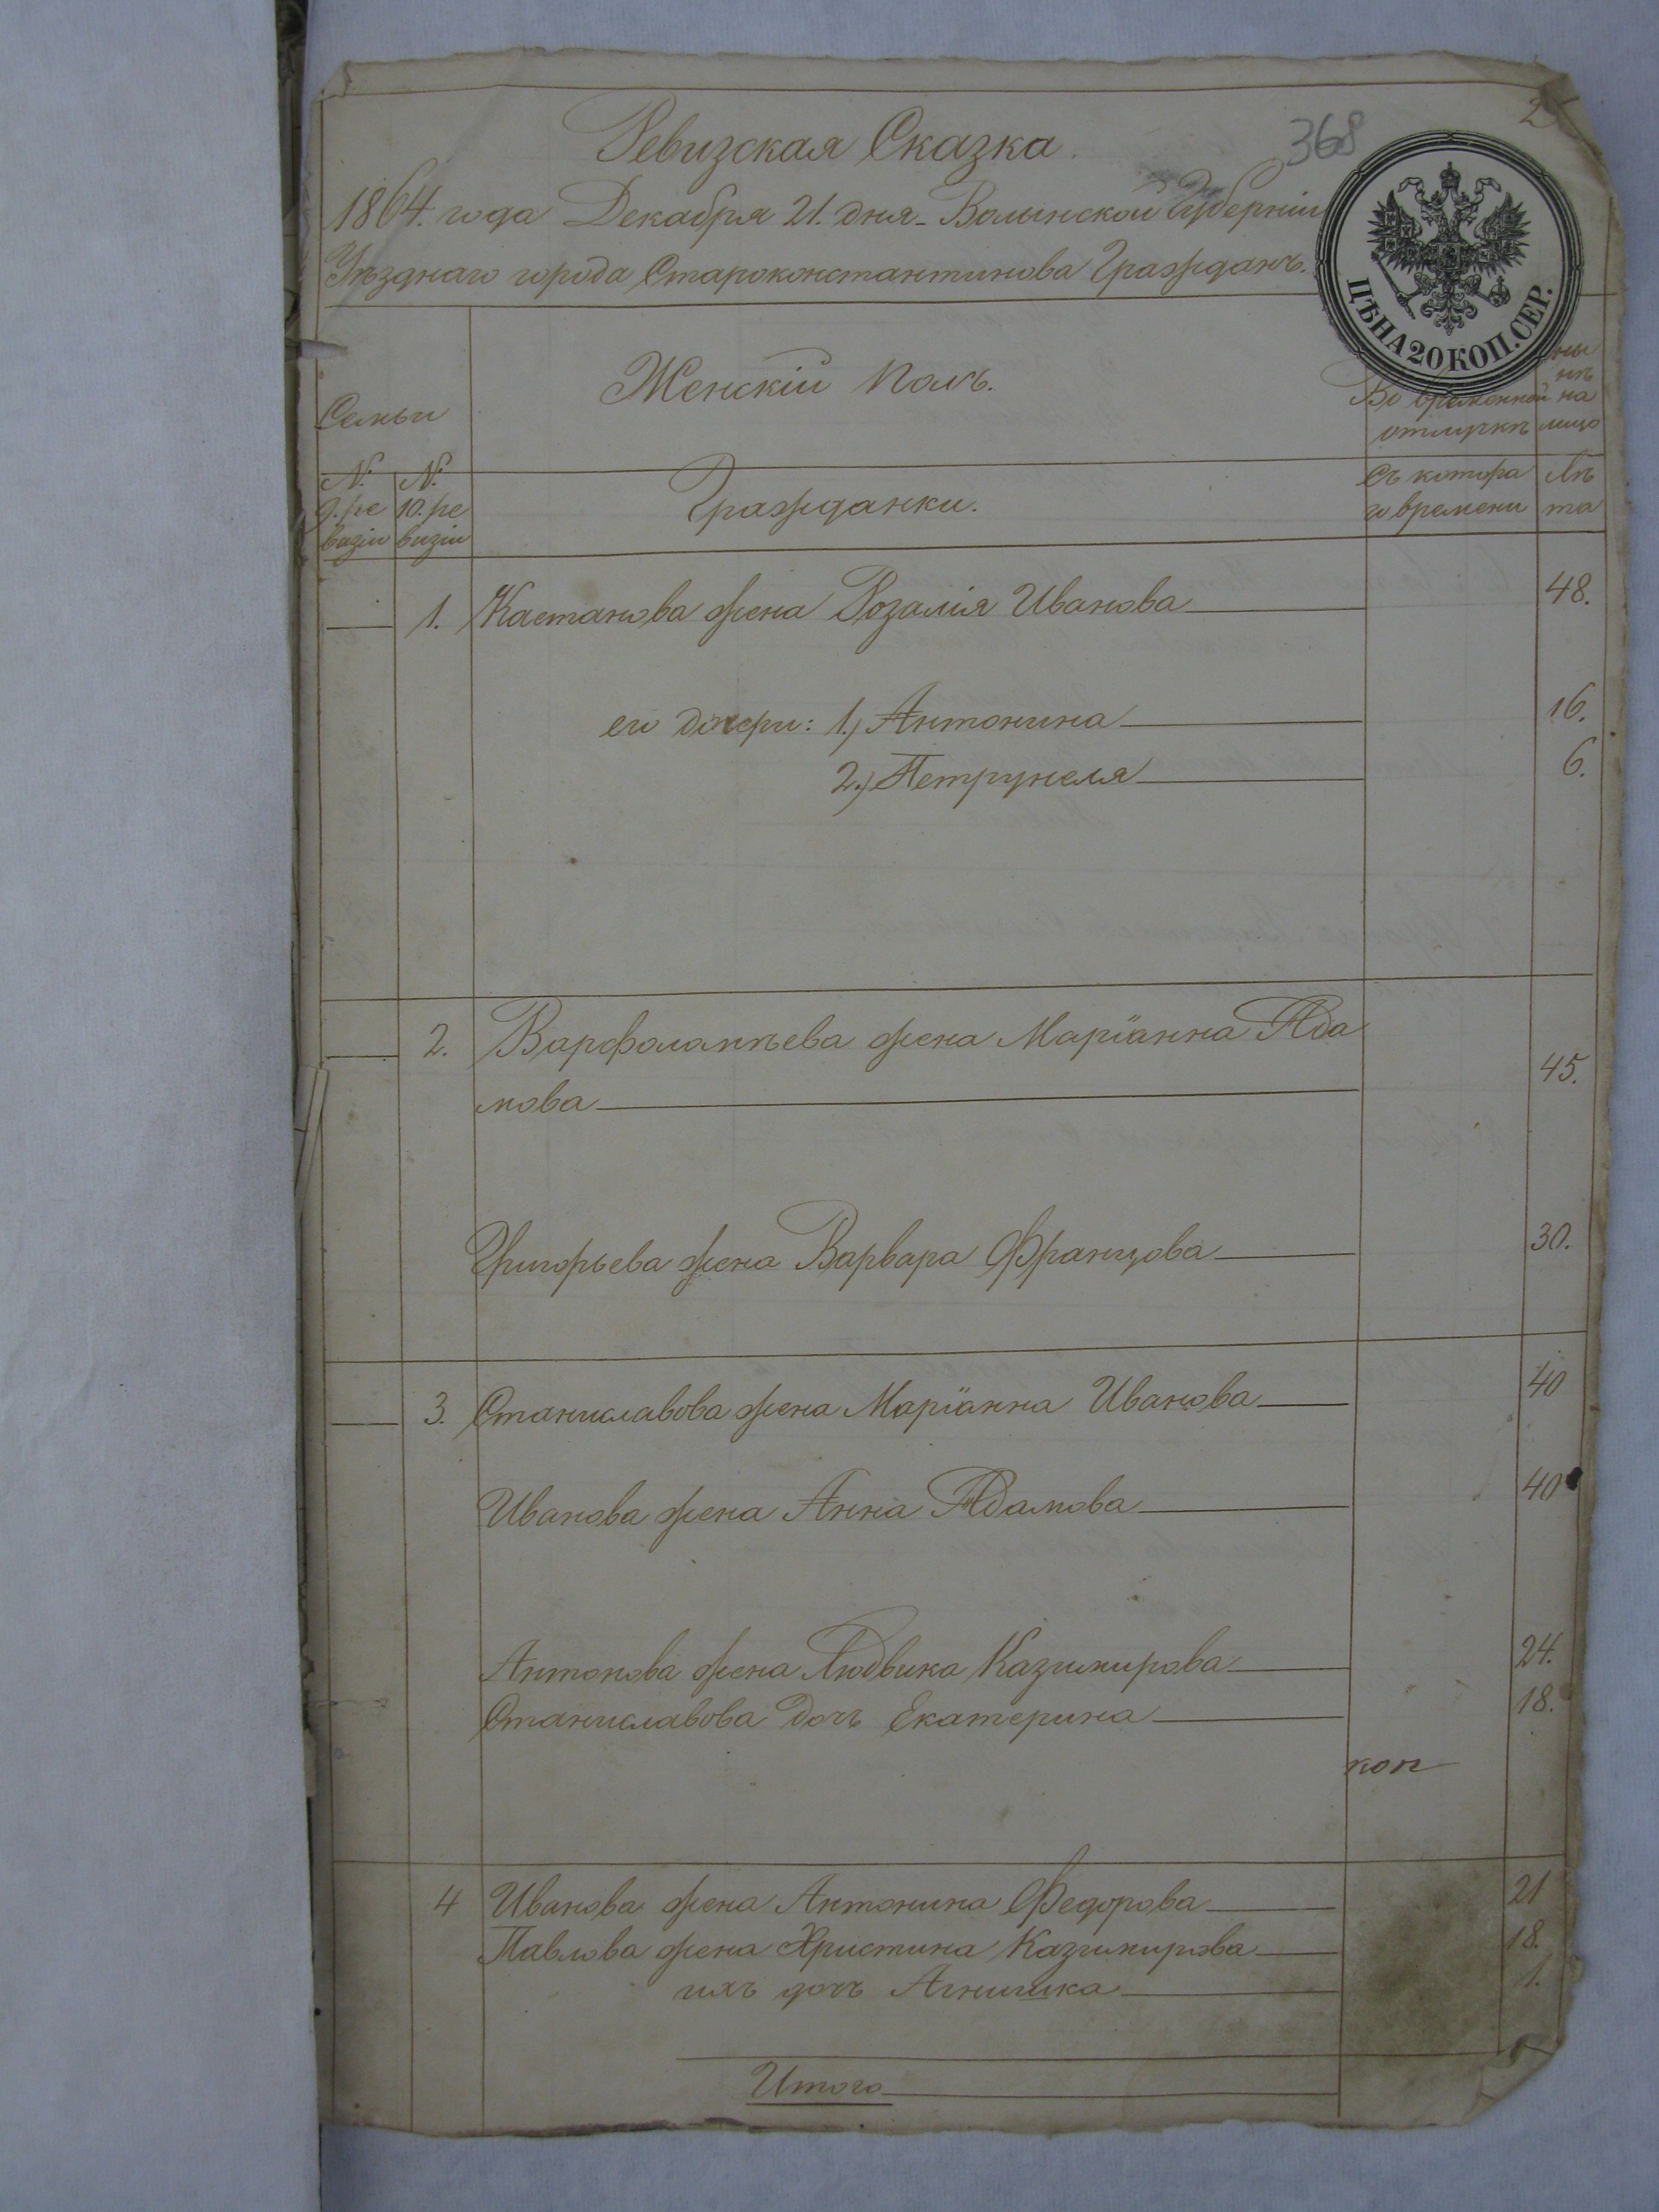 368
Ревизская Сказка.
1864. года Декабря 21. дня Волынской Губерніи
Уѣзднаго города Староконстантинова Гражданъ.
ЦѢНА 20 КОП. СЕР.
Семьи
Женскій полъ.
Во временной
отлучкѣ
на
лицо
№. 9. ре
визіи
№. 10. ре
визіи
Гражданки.
Съ котора
го времени
Лѣ
та
1. Каетанова жена Розалія Иванова 48.
его дочери: 1.) Антонина 16.
2.) Петрунеля 6.
2. Варфоломѣева жена Маріанна Ада
мова 45.
Григорьева жена Варвара Францова 30.
3. Станиславова жена Маріанна Иванова 40
Иванова жена Анна Адамова 40
Антонова жена Людвика Казимирова 24.
Станиславова дочь Екатерина 18.
коп
4 Иванова жена Антонина Федорова 21
Павлова жена Христина Казимирова 18.
ихъ дочь Агнишка 1.
Итого